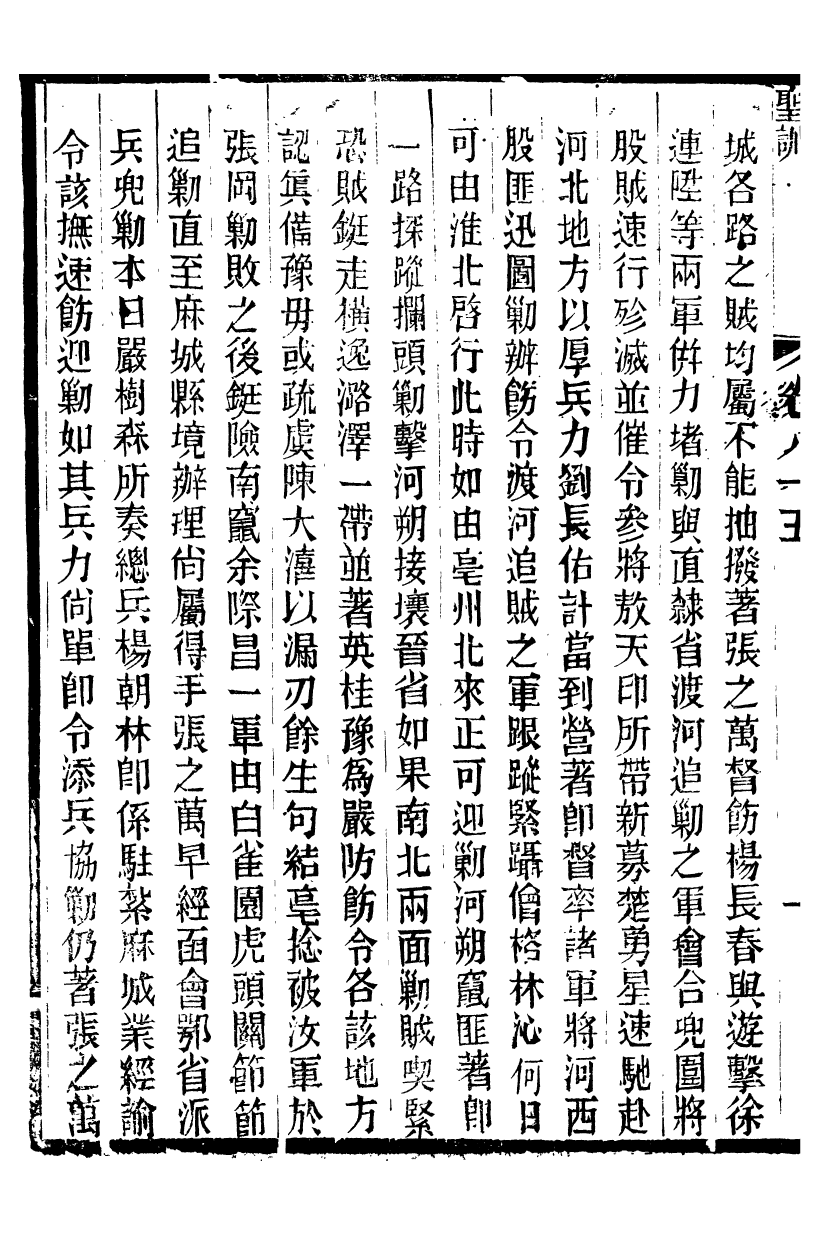 聖訓 卷八十五 一
城各路之賊均屬不能抽撥著張之萬督飭楊長春與遊擊徐
連陞等兩軍併力堵勦與直隸省渡河追勦之軍會合兜圍將
股賊速行殄滅並催令參將敖天印所帶新募楚勇星速馳赴
河北地方以厚兵力劉長佑計當到營著卽督率諸軍將河西
股匪迅圖勦辦飭令渡河追賊之軍跟蹤緊躡僧格林沁何日
可由淮北啓行此時如由亳州北來正可迎勦河朔竄匪著卽
一路探蹤攔頭勦擊河朔接壤晉省如果南北兩面勦賊喫緊
恐賊鋌走橫逸潞澤一帶並著英桂豫爲嚴防飭令各該地方
認眞備豫毋或疏虞陳大憙以漏刃餘生句結亳捻被汝軍於
張岡勦敗之後鋌險南竄余際昌一軍由白雀園虎頭關節節
追勦直至麻城縣境辦理尙屬得手張之萬早經函會鄂省派
兵兜勦本日嚴樹森所奏總兵楊朝林卽係駐紮麻城業經諭
令該撫速飭迎勦如其兵力尙單卽令添兵協勦仍著張之萬